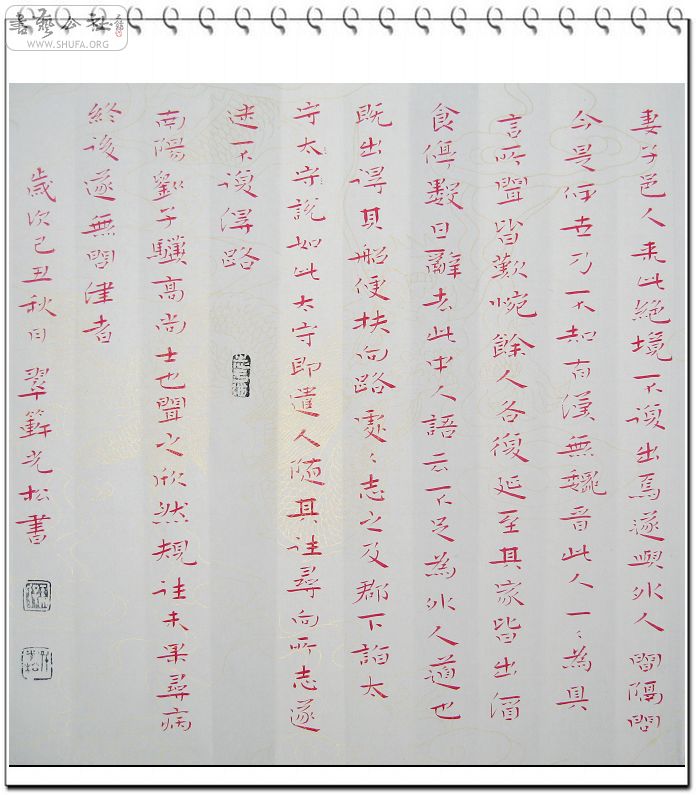 書藝公社
WWW.SHUFA.ORG
妻子邑人来此絶境不復出焉遂與外人間隔問
今是何世乃不知有漢無魏晉此人一〻為具
言所聞皆歎惋餘人各復延至其家皆出酒
食停數日辭去此中人語云不足為外人道也
既出得其船便扶向路處〻志之及郡下詣太
守太守說如此太守即遣人隨其往尋向所志遂
迷不復得路
南陽劉子驥高尚士也聞之欣然規往未果尋病
終後遂無問津者
歲次己丑秋日 翠光松書